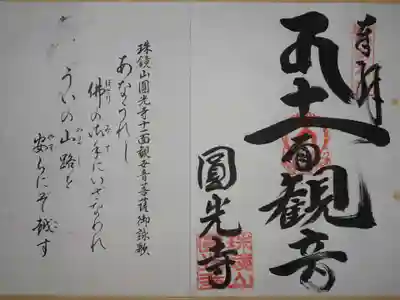 奉拝
十一面観音
圓光寺
珠鏡山圓光寺十一面観世音菩薩御詠歌
あなうれし
佛のみ手にいざなわれ
ういの山路を
安らにぞ越す